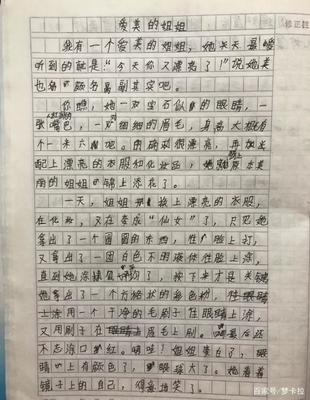 爱美的姐姐
我有一个爱美的姐姐,她天天最
听到的就是:“今天你又漂亮了!”说她美
也名副其实吧。
你瞧,她一双宝石似的眼睛,一
张嘴巴,一对细细的眉毛,身高大概有
个一米六吧。的确很漂亮,再加
配上漂亮的衣服和化妆品,她本美
丽的姐姐锦上添花了。
一天,姐姐换上漂亮的衣服,
在化妆,又在变成“仙女”了,只见她
拿出了一个圆圆的东西,往脸上打,
又拿出了一团白色不明液体往脸上涂,
直到她涂抹均匀了,接下来才是关键
她拿出了一个方格状的彩色粉,往眼睛
上涂用一个干净的毛刷子往眼睛上涂,
又用刷子在眉毛上刷。最后还
不忘涂口红。哇!姐姐变白了,眼
睛上有颜色了,眼球大了。她看着
镜子上的自己,得意地笑了。
百家号/梦卡拉